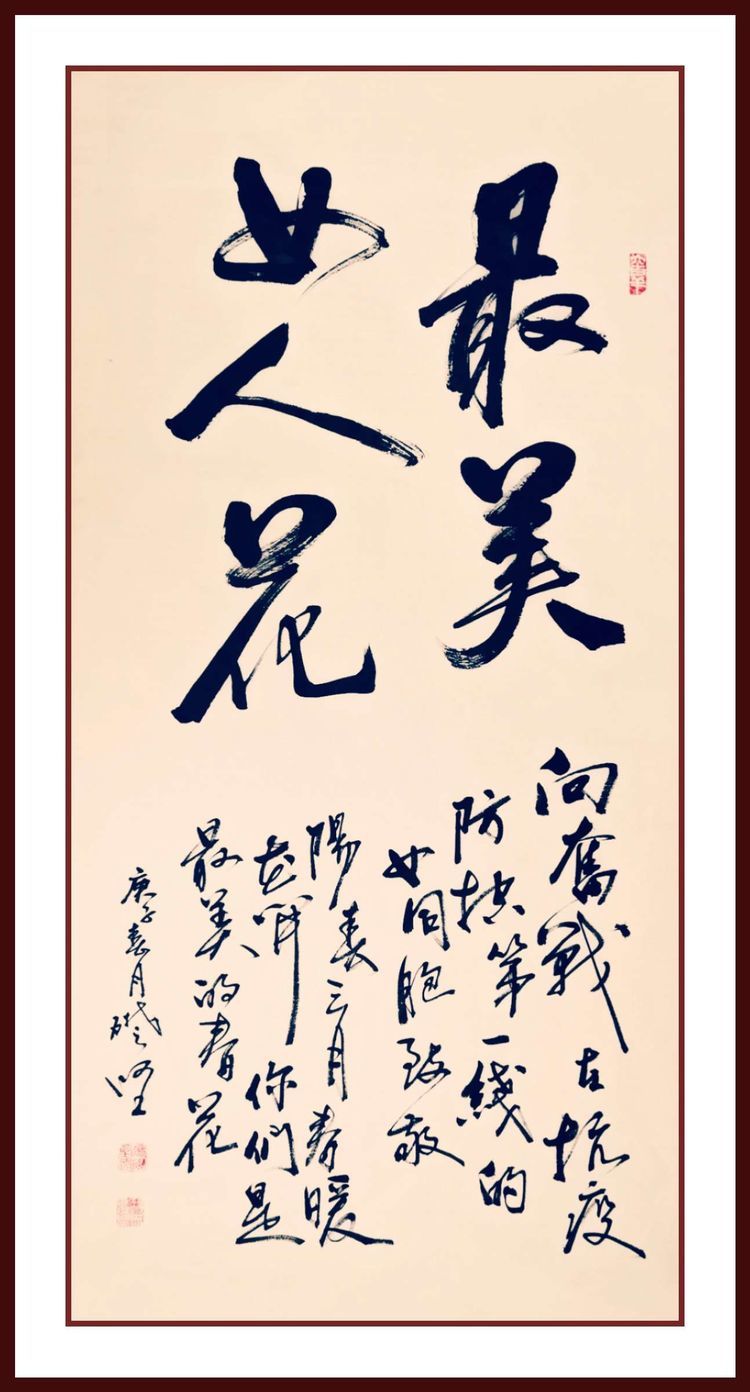 最美
女人花
向奮戰在抗疫
防控第一綫的
女同胞致敬
陽春三月春暖
花開你們是
最美的春花
庚子春月